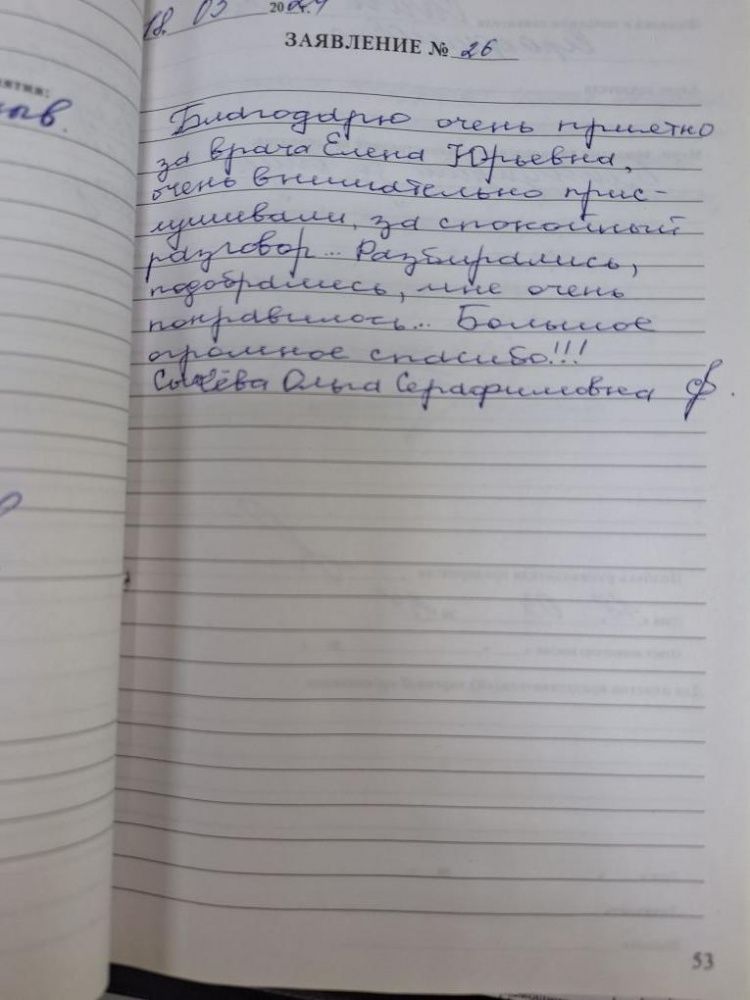 18. 03 2024г.
ЗАЯВЛЕНИЕ № 26
Благодарю очень приятно
за врача Елена Юрьевна,
очень внимательно прис-
лушивали, за спокойный
разговор... Разбирались,
подобрались, мне очень
понравилось... Большое
огромное спасибо!!!
Сычёва Ольга Серафимовна
53